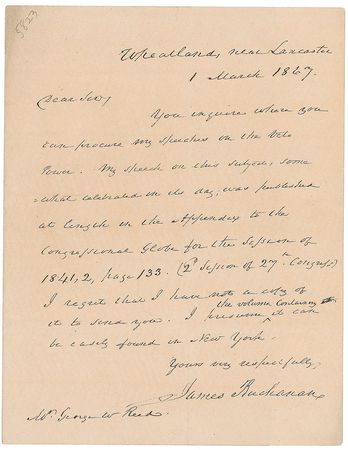 5823
Wheatland, near Lancaster
1 March 1867.
Dear Sir,
You inquire where you
can procure my speeches on the Veto
Power. My speech on this subject, some
=what celebrated in its day, was published
at length in the Appendix to the
Congressional Globe for the Session of
1841,2, page 133. (2d Session of 27th Congress)
I regret that I have not a copy of
the volume containing it
it to send you. I presume ^ can
be easily found in New York.
Yours very respectfully
James Buchanan
Mr. George W Reed.